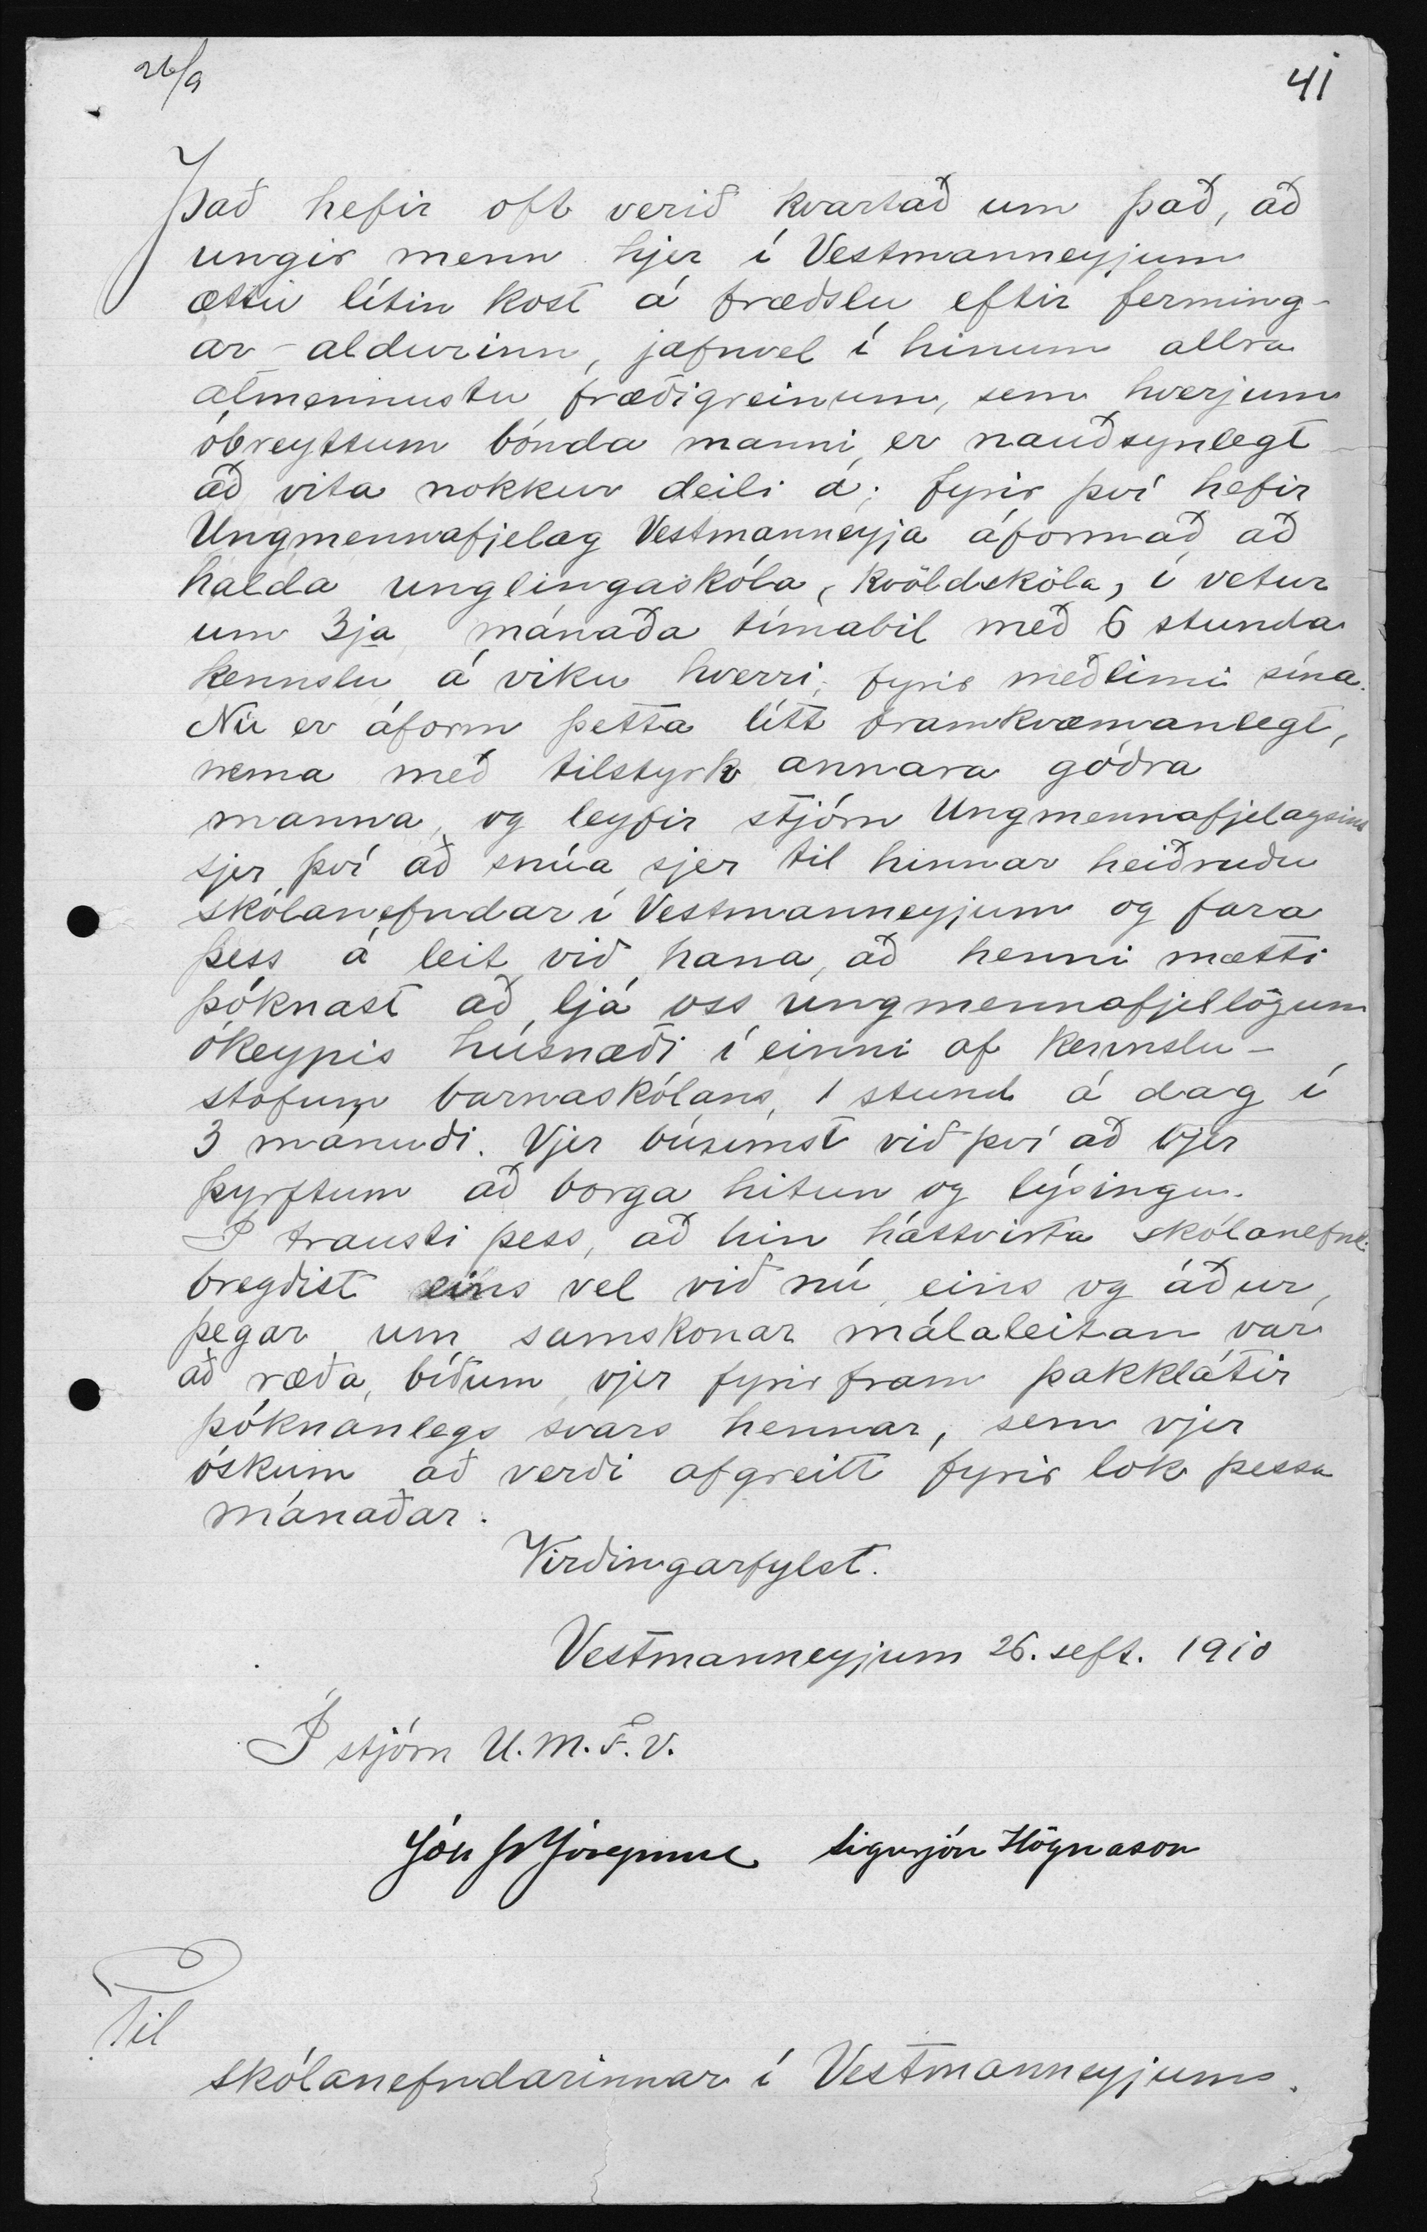 26/9
41
Það hefir oft verið kvartað um það, að
ungir menn hjer í Vestmanneyjum
ættu lítin kost á fræðslu eftir ferming-
ar-aldurinn, jafnvel í hinum allra
almennustu fræðigreinum, sem hverjum
óbreyttum bónda manni er nauðsynlegt
að vita nokkur deili á; fyrir því hefir
Ungmennafjelag Vestmanneyja áformað að
halda unglingaskóla, kvöldskóla, í vetur
um 3ja mánaða tímabil með 6 stunda
kennslu á viku hverri, fyrir meðlimi sína.
Nú er áform þetta lítt framkvæmanlegt,
nema með tilstyrk annara góðra
manna, og leyfir stjórn Ungmennafjelagsins
sjer því að snúa sjer til hinnar heiðruðu
skólanefndar í Vestmanneyjum og fara
þess á leit við hana, að henni mætti
þóknast að ljá oss ungmennafjellögum
ókeypis húsnæði í einni af kennslu-
stofum barnaskólans, 1 stund á dag í
3 mánuði. Vjer búumst við því að vjer
þyrftum að borga hitun og lýsingu.
Í trausti þess, að hin háttvirta skólanefnd
bregðist eins vel við nú, eins og áður,
þegar um samskonar málaleitan var
að ræða, bíðum vjer fyrir fram þakklátir
þóknanlegs svars hennar, sem vjer
óskum að verði afgreitt fyrir lok þessa
mánaðar.
Virðingarfylst.
Vestmanneyjum 26. sept. 1910
Í stjórn U.M.F.V.
Jón Sigurjón Högnason
Til
skólanefndarinnar í Vestmanneyjum.